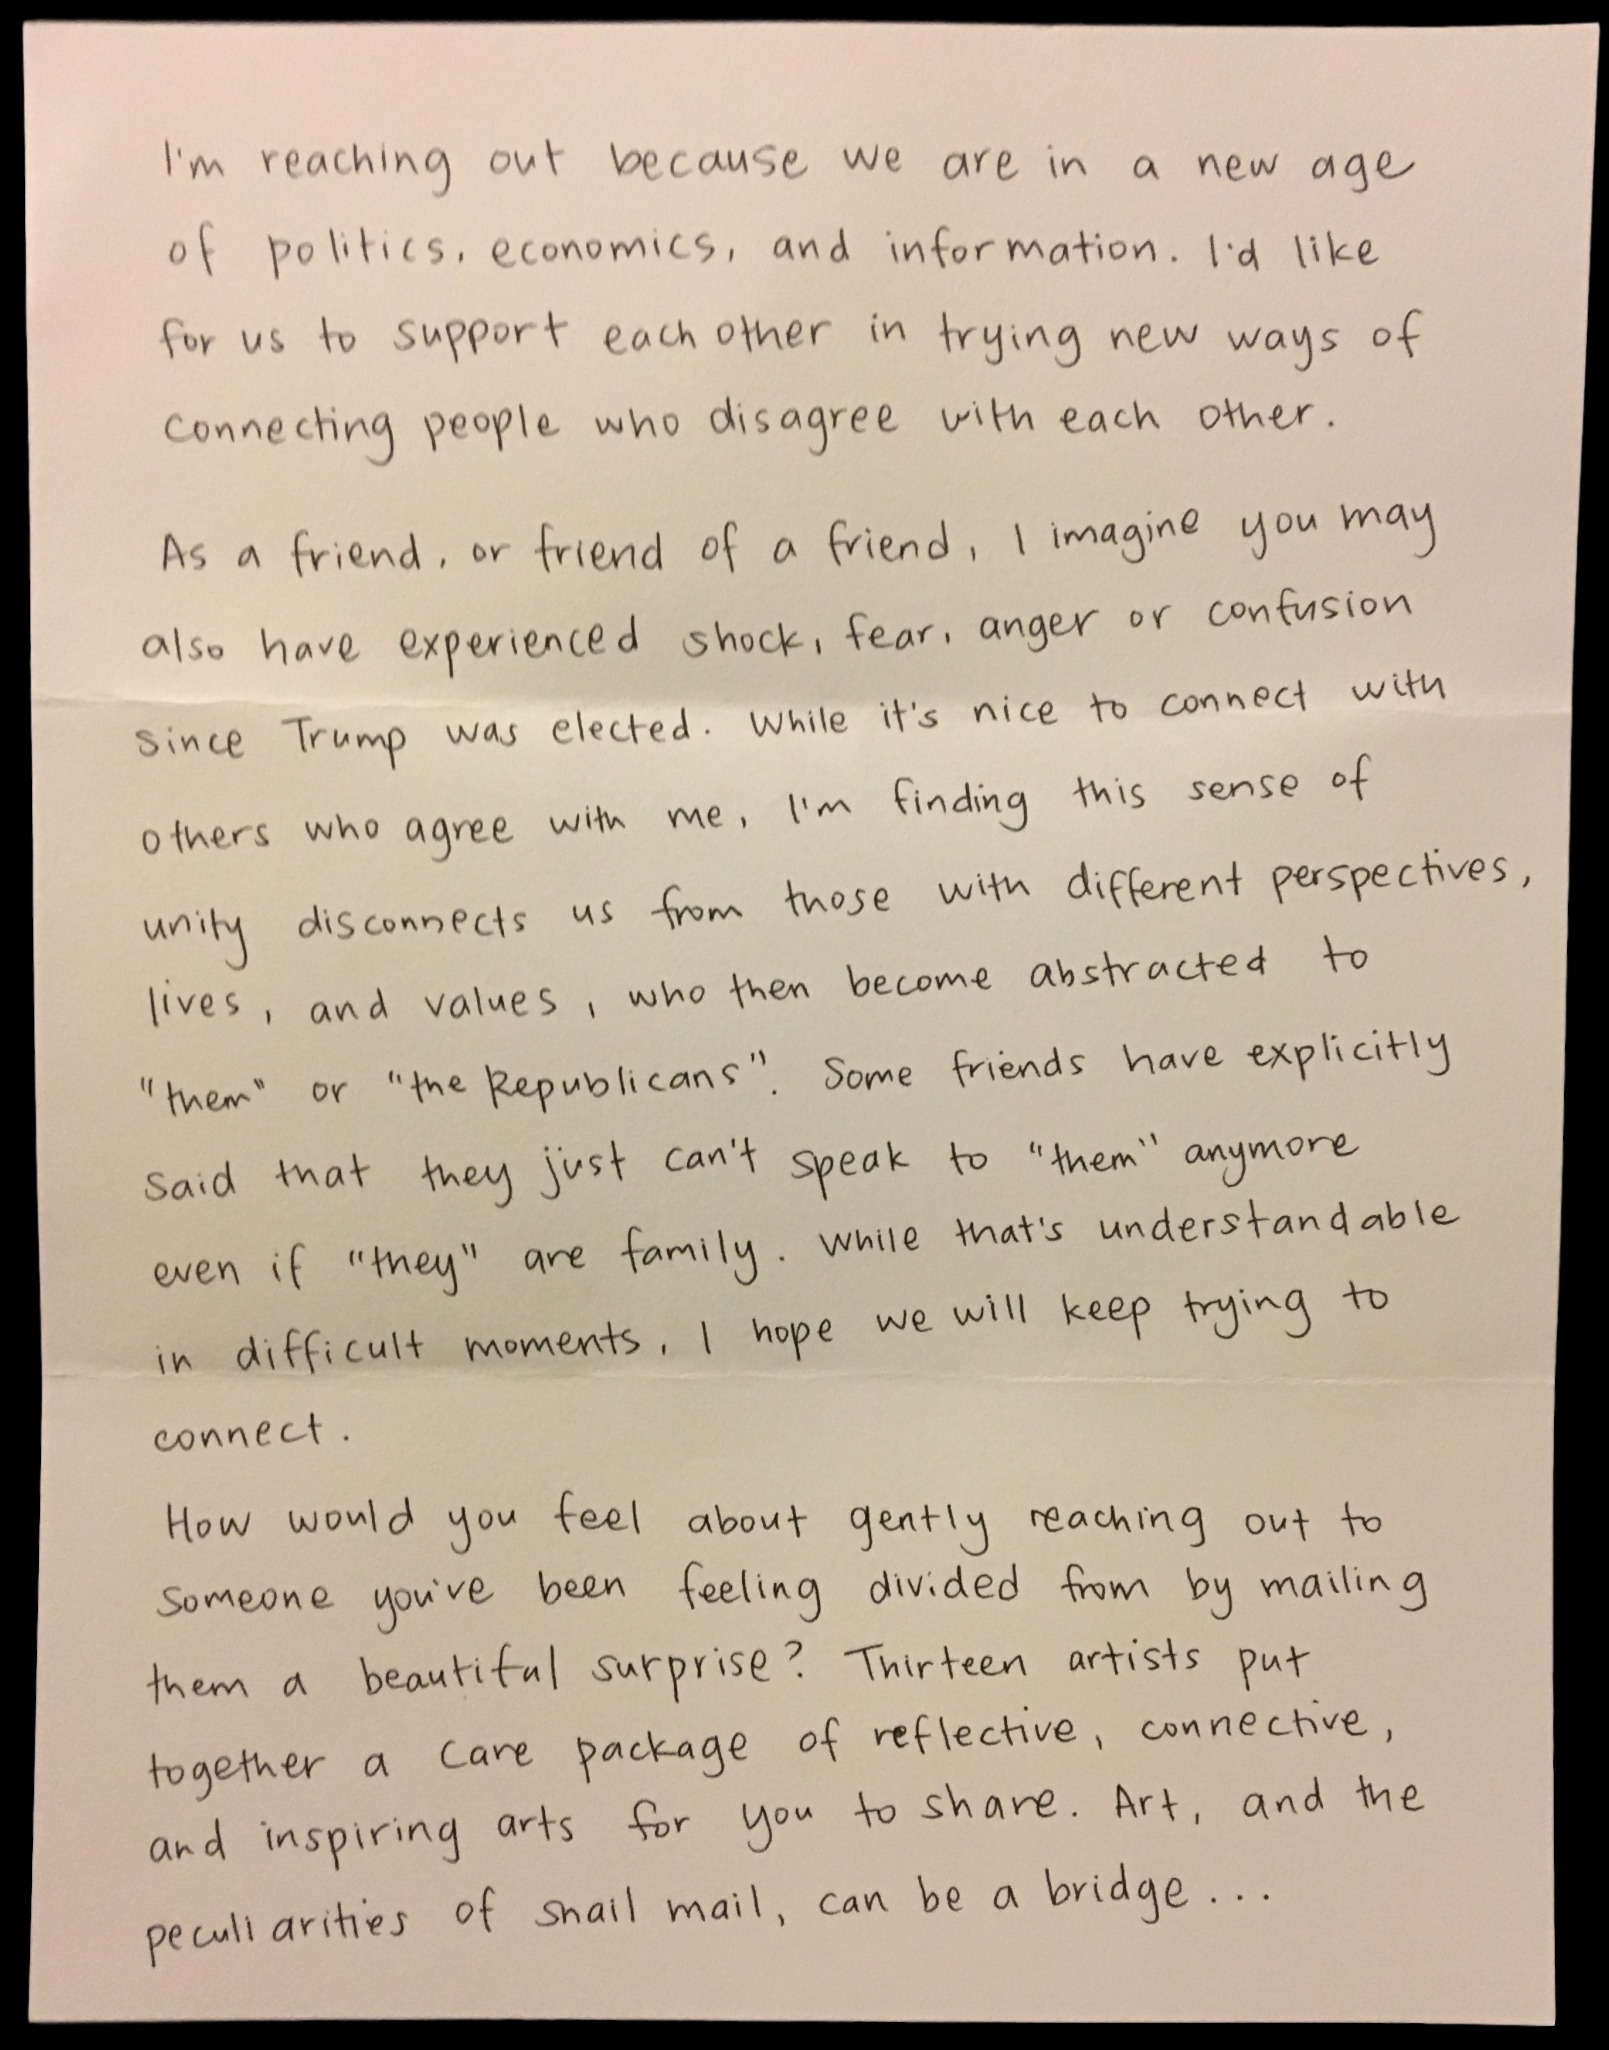 I'm reaching out because we are in a new age
of politics, economics, and information. I'd like
for us to support each other in trying new ways of
connecting people who disagree with each other.
As a friend, or friend of a friend, I imagine you may
also have experienced shock, fear, anger or confusion
since Trump was elected. While it's nice to connect with
others who agree with me, I'm finding this sense of
unity disconnects us from those with different perspectives,
lives, and values, who then become abstracted to
"them" or "the Republicans". Some friends have explicitly
said that they just can't speak to "them" anymore
even if "they" are family. While that's understandable
in difficult moments, I hope we will keep trying to
connect.
How would you feel about gently reaching out to
someone you've been feeling divided from by mailing
them a beautiful surprise? Thirteen artists put
together a care package of reflective, connective,
and inspiring arts for you to share. Art, and the
peculiarities of snail mail, can be a bridge...